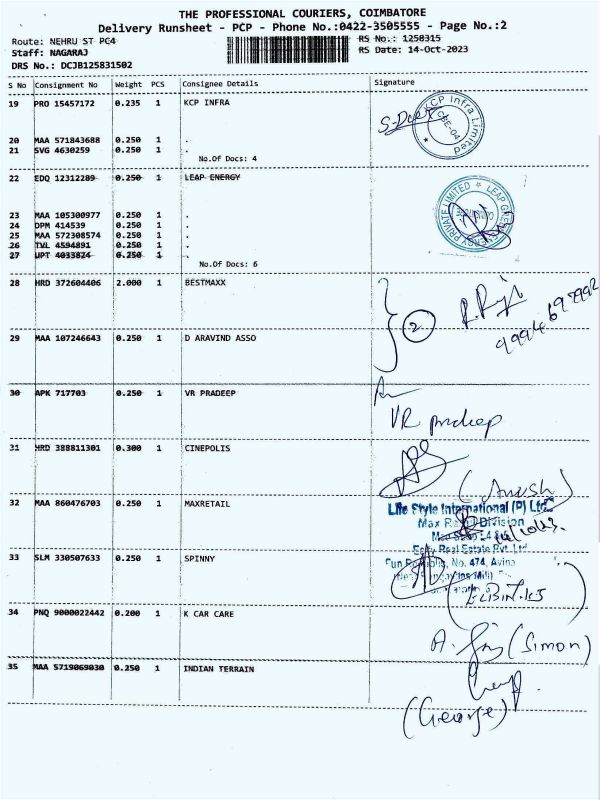 THE PROFESSIONAL COURIERS, COIMBATORE
Delivery Runsheet - PCP - Phone No.:0422-3505555 - Page No.:2
Route: NEHRU ST PC4
RS No.: 1250315
Staff: NAGARAJ
RS Date: 14-Oct-2023
DRS No.: DCJB125831502
S No Consignment No Weight PCS Consignee Details Signature
19 PRO 15457172 0.235 1 KCP INFRA
KCP Infra Limited
CBE-04
20 MAA 571843688 0.250 1 .
21 SVG 4630259 0.250 1 .
No.Of Docs: 4
22 EDQ 12312289 0.250 1 LEAP ENERGY
LEAP GREEN ENERGY PRIVATE LIMITED
23 MAA 105300977 0.250 1 .
24 DPM 414539 0.250 1 .
25 MAA 572308574 0.250 1 .
26 TVL 4594891 0.250 1 .
27 UPT 4033824 0.250 1 .
No.Of Docs: 6
28 HRD 372604406 2.000 1 BESTMAXX
2
29 MAA 107246643 0.250 1 D ARAVIND ASSO
30 APK 717703 0.250 1 VR PRADEEP
VR pradeep
31 HRD 388811301 0.300 1 CINEPOLIS
32 MAA 860476703 0.250 1 MAXRETAIL
Life Style International (P) Ltd
Max Retail Division
Real Estate Pvt. Ltd
No. 474, Avina
33 SLM 330507633 0.250 1 SPINNY
34 PNQ 9000022442 0.200 1 K CAR CARE
(Simon)
35 MAA 5719069030 0.250 1 INDIAN TERRAIN
(George)